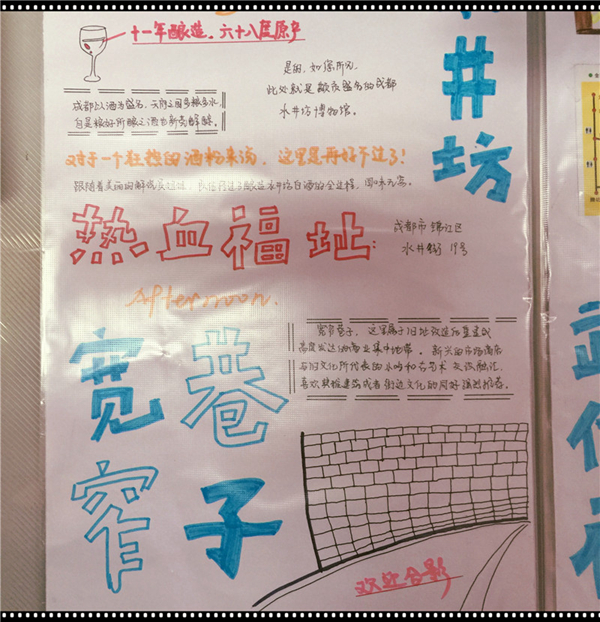 十一年酿造。六十八度原产
是的,如您所见,
此处就是歇夜盛名的成都
水井坊博物馆。
井坊
成都以酒为盛名,天府之国多粮多水
自是粮好所酿之酒也
对于一个狂热的酒粉来说,这里是再好不过了!
跟随着美丽的解说员姐姐,
水井坊白酒的全过程,回味无穷。
热血福址:
成都市锦江区
水井街 19号
Afternoon.
宽窄巷子
宽窄巷子,这里属于旧址改造
高度发达的商业集中地带。新兴的市场商店
与旧文化所代表的小吃和古艺术 交汇融汇
喜欢典雅建筑或者街边文化的同好强烈推荐。
欢迎合影
武侯